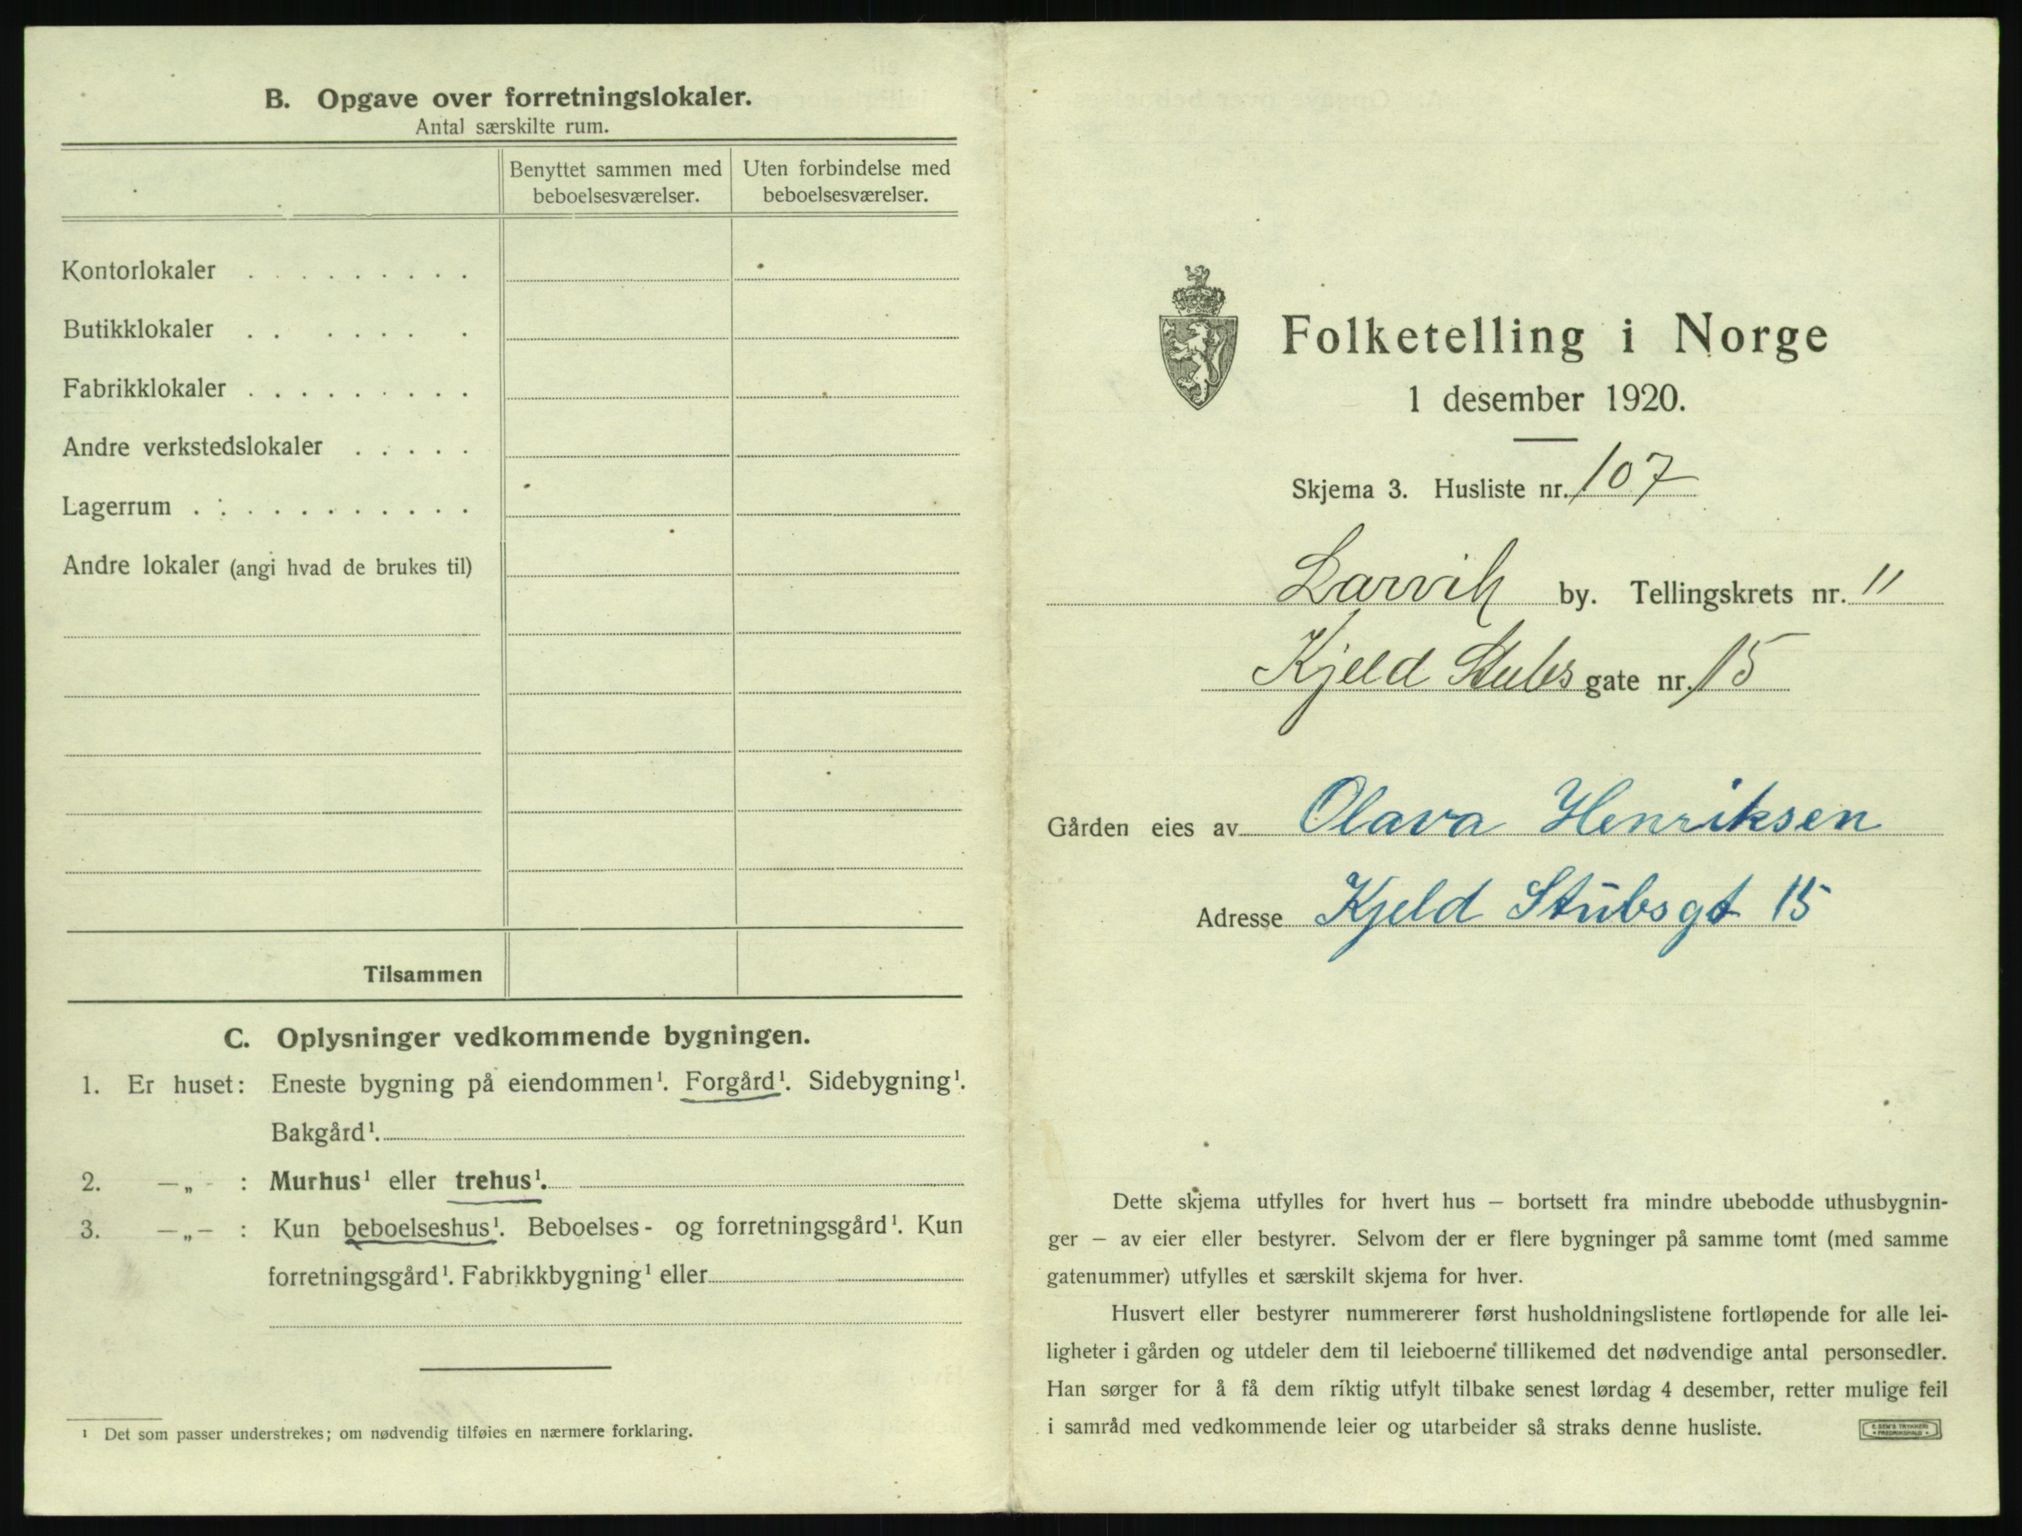 B. Opgave over forretningslokaler.
Antal særskilte rum.
Benyttet sammen med beboelsesværelser.
Uten forbindelse med beboelsesværelser.
Kontorlokaler . . . . . . . . .
Butikklokaler . . . . . . .
Fabrikklokaler . . . . . . . . .
Andre verkstedslokaler . . . . .
Lagerrum . . . . . . . . . . .
Andre lokaler (angi hvad de brukes til)
Tilsammen
C. Oplysninger vedkommende bygningen.
1. Er huset: Eneste bygning på eiendommen¹. Forgård¹. Sidebygning¹.
Bakgård¹.
2. —„— : Murhus¹ eller trehus¹.
3. —„— : Kun beboelseshus¹. Beboelses- og forretningsgård¹. Kun
forretningsgård¹. Fabrikkbygning¹ eller
¹ Det som passer understrekes; om nødvendig tilføies en nærmere forklaring.
Folketelling i Norge
1 desember 1920.
Skjema 3. Husliste nr. 107
Larvik by. Tellingskrets nr. 11
Kjeld Stubs gate nr. 15
Gården eies av Olava Henriksen
Adresse Kjeld Stubsgt 15
Dette skjema utfylles for hvert hus – bortsett fra mindre ubebodde uthusbygnin-
ger – av eier eller bestyrer. Selvom der er flere bygninger på samme tomt (med samme
gatenummer) utfylles et særskilt skjema for hver.
Husvert eller bestyrer nummererer først husholdningslistene fortløpende for alle lei-
ligheter i gården og utdeler dem til leieboerne tillikemed det nødvendige antal personsedler.
Han sørger for å få dem riktig utfylt tilbake senest lørdag 4 desember, retter mulige feil
i samråd med vedkommende leier og utarbeider så straks denne husliste.